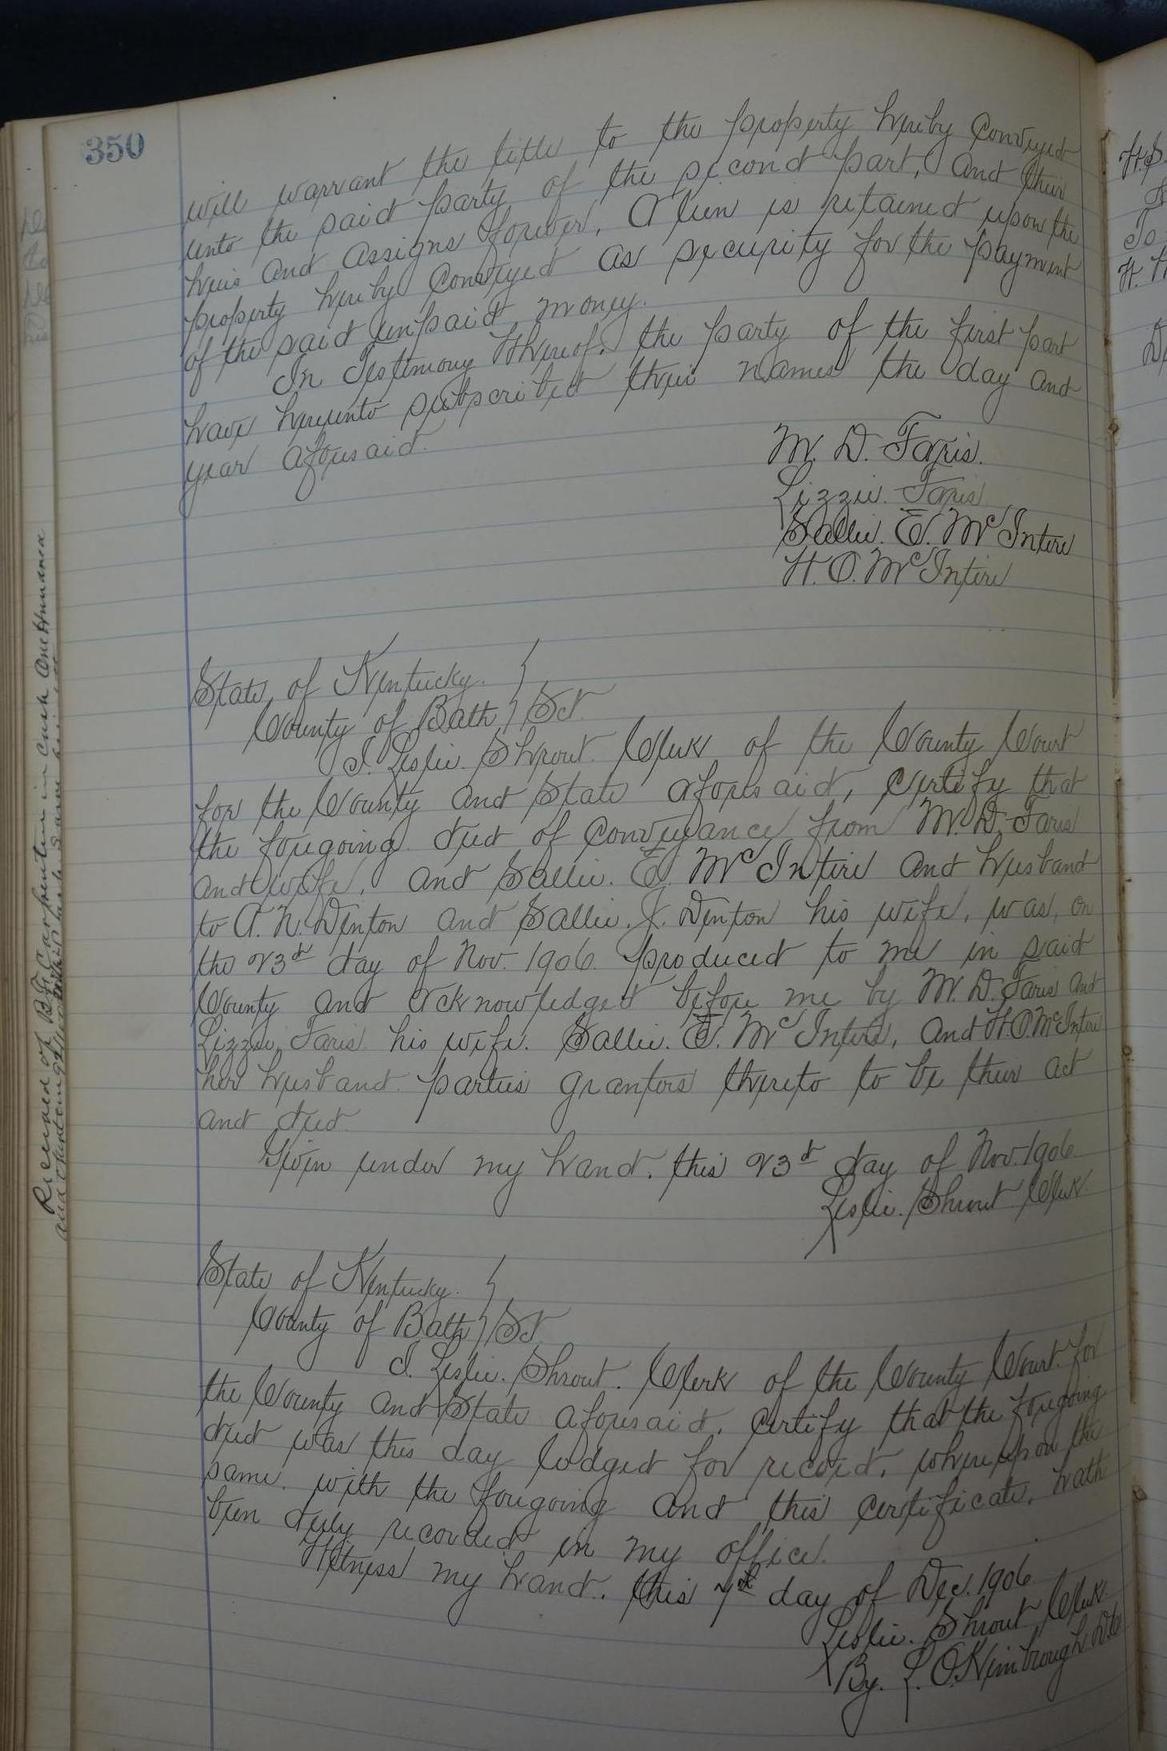 350
will warrant the title to the property hereby conveyed
unto the said party of the second part, and their
heirs and assigns forever. A lien is retained upon the
property hereby conveyed as security for the payment
of the said unpaid money.
In Testimony thereof. the party of the first part
have hereunto subscribed their names the day and
year aforesaid.
M. D. Faris.
Lizzie. Faris
Sallie. E. McIntire
H. O. McIntire
State of Kentucky. }
County of Bath } Sct
I. Leslie. Shrout. Clerk of the County Court
for the County and State aforesaid, certify that
the foregoing deed of conveyance from M. D. Faris
and wife, and Sallie. E. McIntire and husband
to A. N. Denton and Sallie. J. Denton his wife, was, on
the 23d day of Nov. 1906. produced to me in said
County and acknowledged before me by M. D. Faris and
Lizzie Faris his wife. Sallie. E. McIntire, and H. O. McIntire
her husband. parties grantors thereto to be their act
and deed.
Given under my hand. this 23d day of Nov. 1906
Leslie. Shrout Clerk
State of Kentucky. }
County of Bath } Sct
I. Leslie. Shrout. Clerk of the County Court. for
the County and State aforesaid, certify that the foregoing
deed was this day lodged for record, whereupon the
same. with the foregoing and this certificate, hath
been duly recorded in my office.
Witness my hand. this 7th day of Dec. 1906
Leslie. Shrout Clerk
By. L. O. Kimbrough. D.C.
Received of B. F. Carpenter in Cash One Hundred